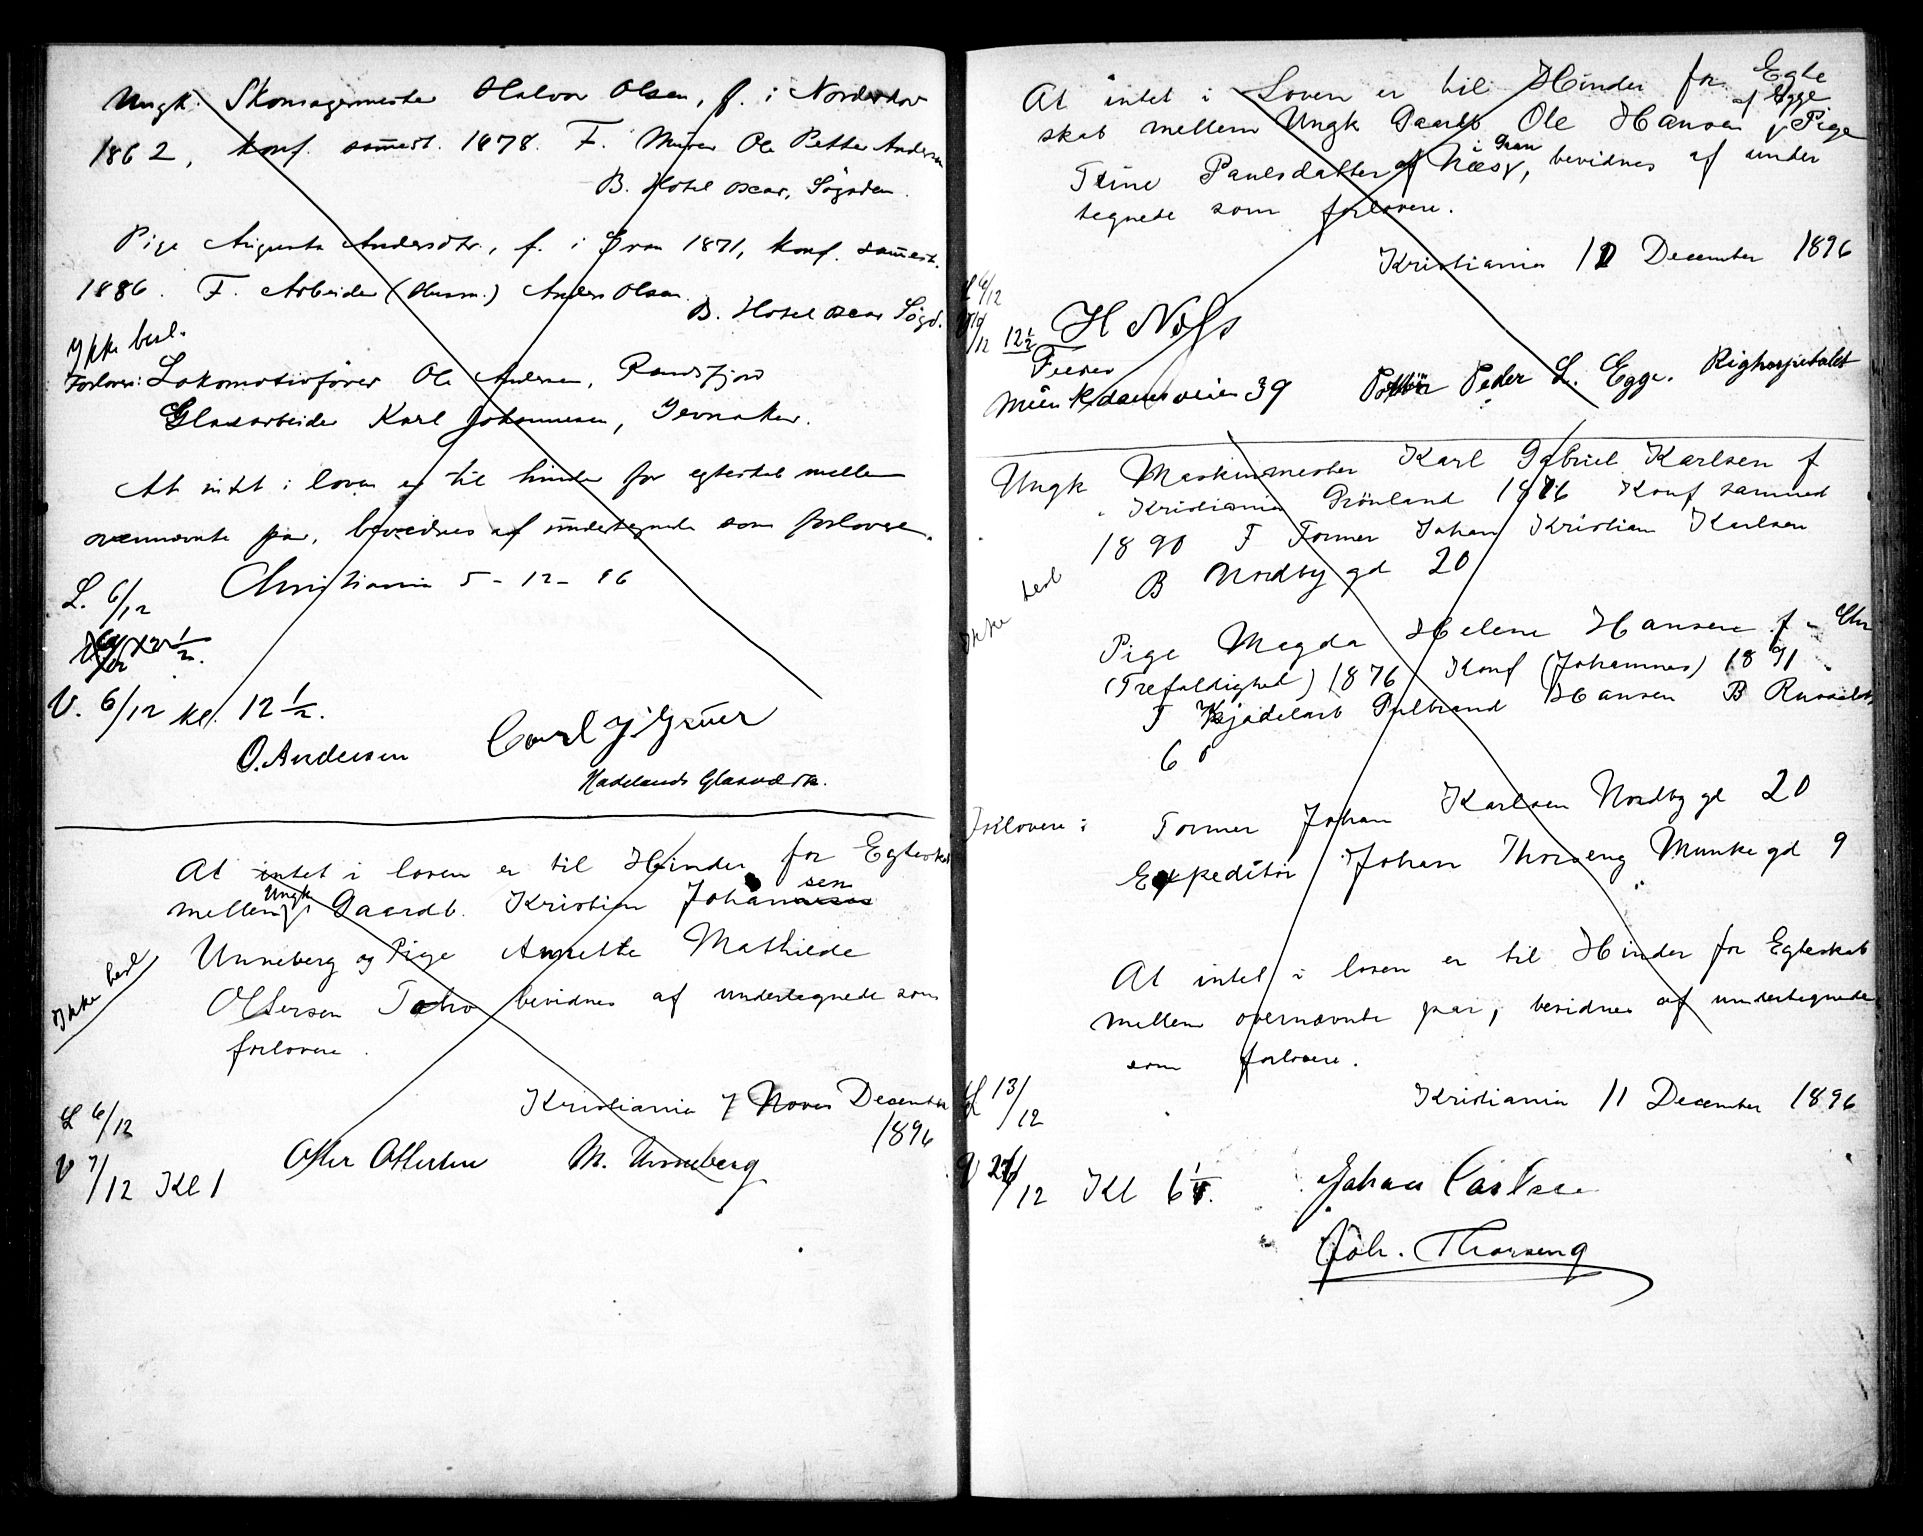 Ungk. Skomagermester Halvor Olsen, f. i Norderhov
1862, konf. sammest. 1878. F. Murer Ole Petter Andersen
B. Hotel Oscar, Søgaden.
Pige Augusta Andersdtr., f. i Gran 1871, konf. sammest.
1886. F. Arbeider (Husm.) Anders Olsen.
B. Hotel Oscar Søgd.
Ikke besl.
Forlover: Lokomotivfører Ole Andersen, Randsfjord
Glasarbeider Karl Johannesen, Jevnaker.
At intet i loven er til hinder for egteskab mellem
ovennævnte par, bevidnes af undertegnede som forlovere.
L. 6/12
Christiania 5-12-96
V. 6/12 kl. 12 1/2.
O. Andersen Carl
Hadelands Glasværk.
At intet i loven er til Hinder for Egteskab
mellem Ungk Gaardb. Kristian Johansen
Unneberg og Pige Annette Mathilde
Ikke besl
Ottersen bevidnes af undertegnede som
forlovere.
Kristiania 7 December
1896
L 6/12
Otter Ottersen M. Unneberg
V 7/12 Kl 1
At intet i Loven er til Hinder for Egte
skab mellem Ungk Gaardb Ole Hansen af Egge & Pige
Trine Paulsdatter af Næs i Gran, bevidnes af under
tegnede som forlovere.
Kristiania 12 December 1896
L 6/12
/12 12 1/2
H Nøss
Munkedamsveien 39
Peder L. Egge. Righospitalet
Ungk Maskinmester Karl Gabriel Karlsen f
i Kristiania Grønland 1876 Konf sammed
1890 F Former Johan Kristian Karlsen
B Nordbygd 20
Ikke besl
Pige Magda Helene Hansen f i Chr
(Trefoldighed) 1876 Konf (Johannes) 1891
F Kjødelarb Gulbrand Hansen B
60
Forlovere: Former Johan Karlsen Nordbygd 20
Expeditør Johan Thorseng Munkegd 9
At intet i loven er til Hinder for Egteskab
mellem overnævnte par, bevidnes af undertegnede
som forlovere.
L 13/12
Kristiania 11 December 1896
V 26/12 Kl 6 1/4.
Johan Carlsen
Joh. Thorseng